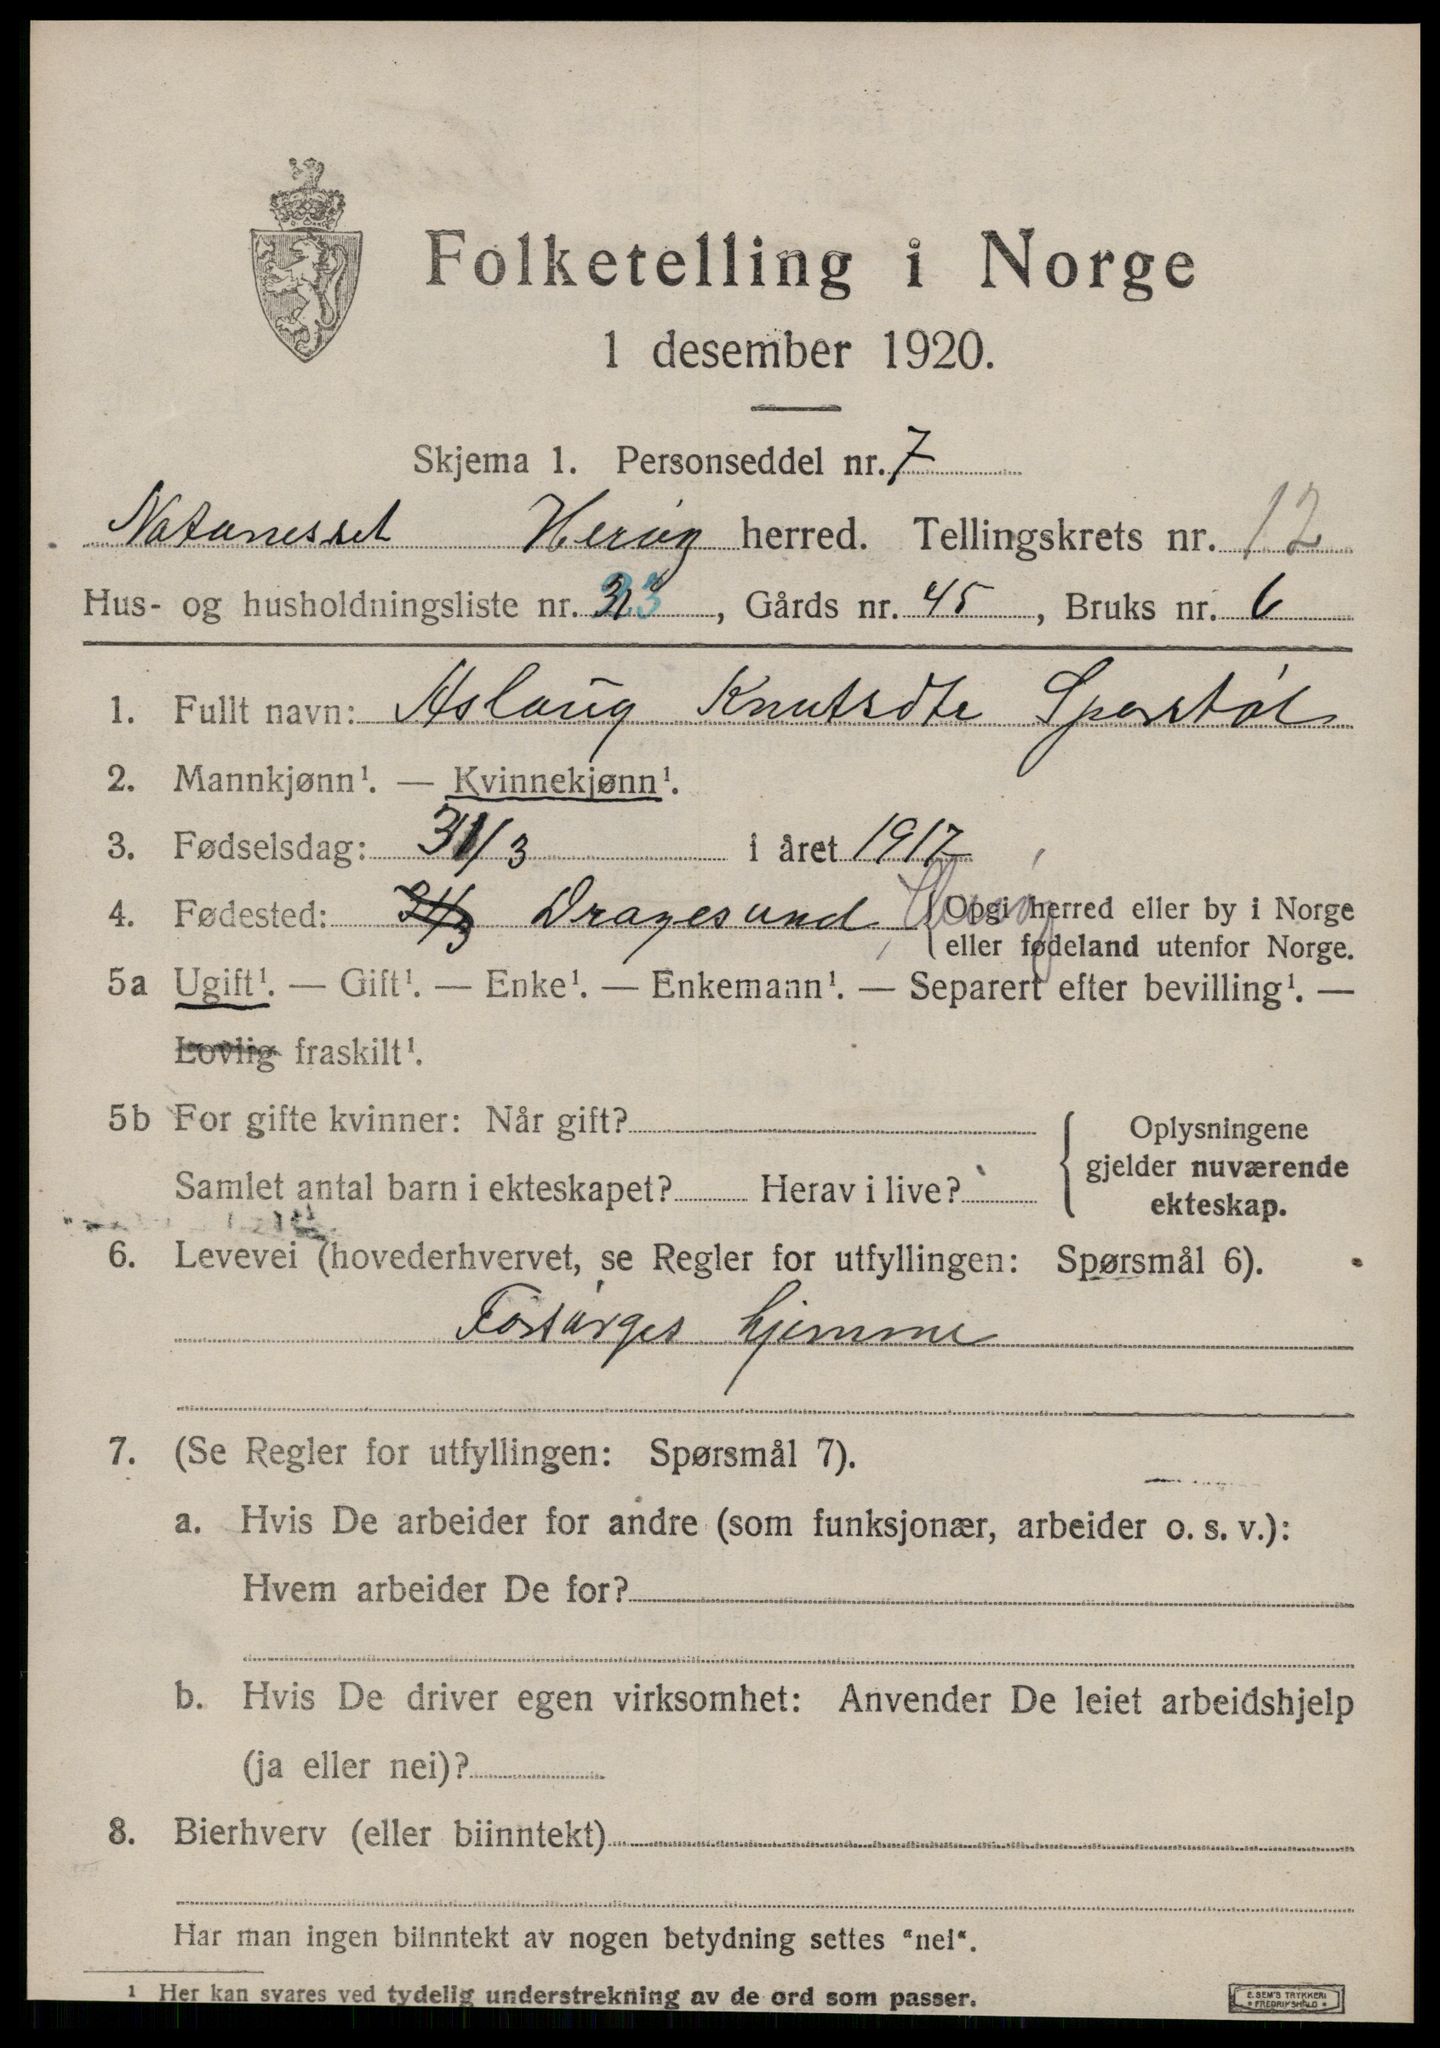 Folketelling i Norge
1 desember 1920.
Skjema 1. Personseddel nr. 7
Herøy herred. Tellingskrets nr. 12
Hus- og husholdningsliste nr. 23, Gårds nr. 45, Bruks nr. 6
1. Fullt navn: Aslaug Knutsdte Sporstøl
2. Mannkjønn¹. — Kvinnekjønn¹.
3. Fødselsdag: 31/3 i året 1917
4. Fødested: 31/3 Dragesund, Herøy {Opgi herred eller by i Norge
eller fødeland utenfor Norge.
5a Ugift¹. — Gift¹. — Enke¹. — Enkemann¹. — Separert efter bevilling¹. —
Lovlig fraskilt¹.
5b For gifte kvinner: Når gift? { Oplysningene
gjelder nuværende
Samlet antal barn i ekteskapet? Herav i live? ekteskap.
6. Levevei (hovederhvervet, se Regler for utfyllingen: Spørsmål 6).
Forsørges hjemme
7. (Se Regler for utfyllingen: Spørsmål 7).
a. Hvis De arbeider for andre (som funksjonær, arbeider o. s. v.):
Hvem arbeider De for?
b. Hvis De driver egen virksomhet: Anvender De leiet arbeidshjelp
(ja eller nei)?
8. Bierhverv (eller biinntekt)
Har man ingen biinntekt av nogen betydning settes "nei".
¹ Her kan svares ved tydelig understrekning av de ord som passer.
E. SEM'S TRYKKERI
* FREDRIKSHALD *